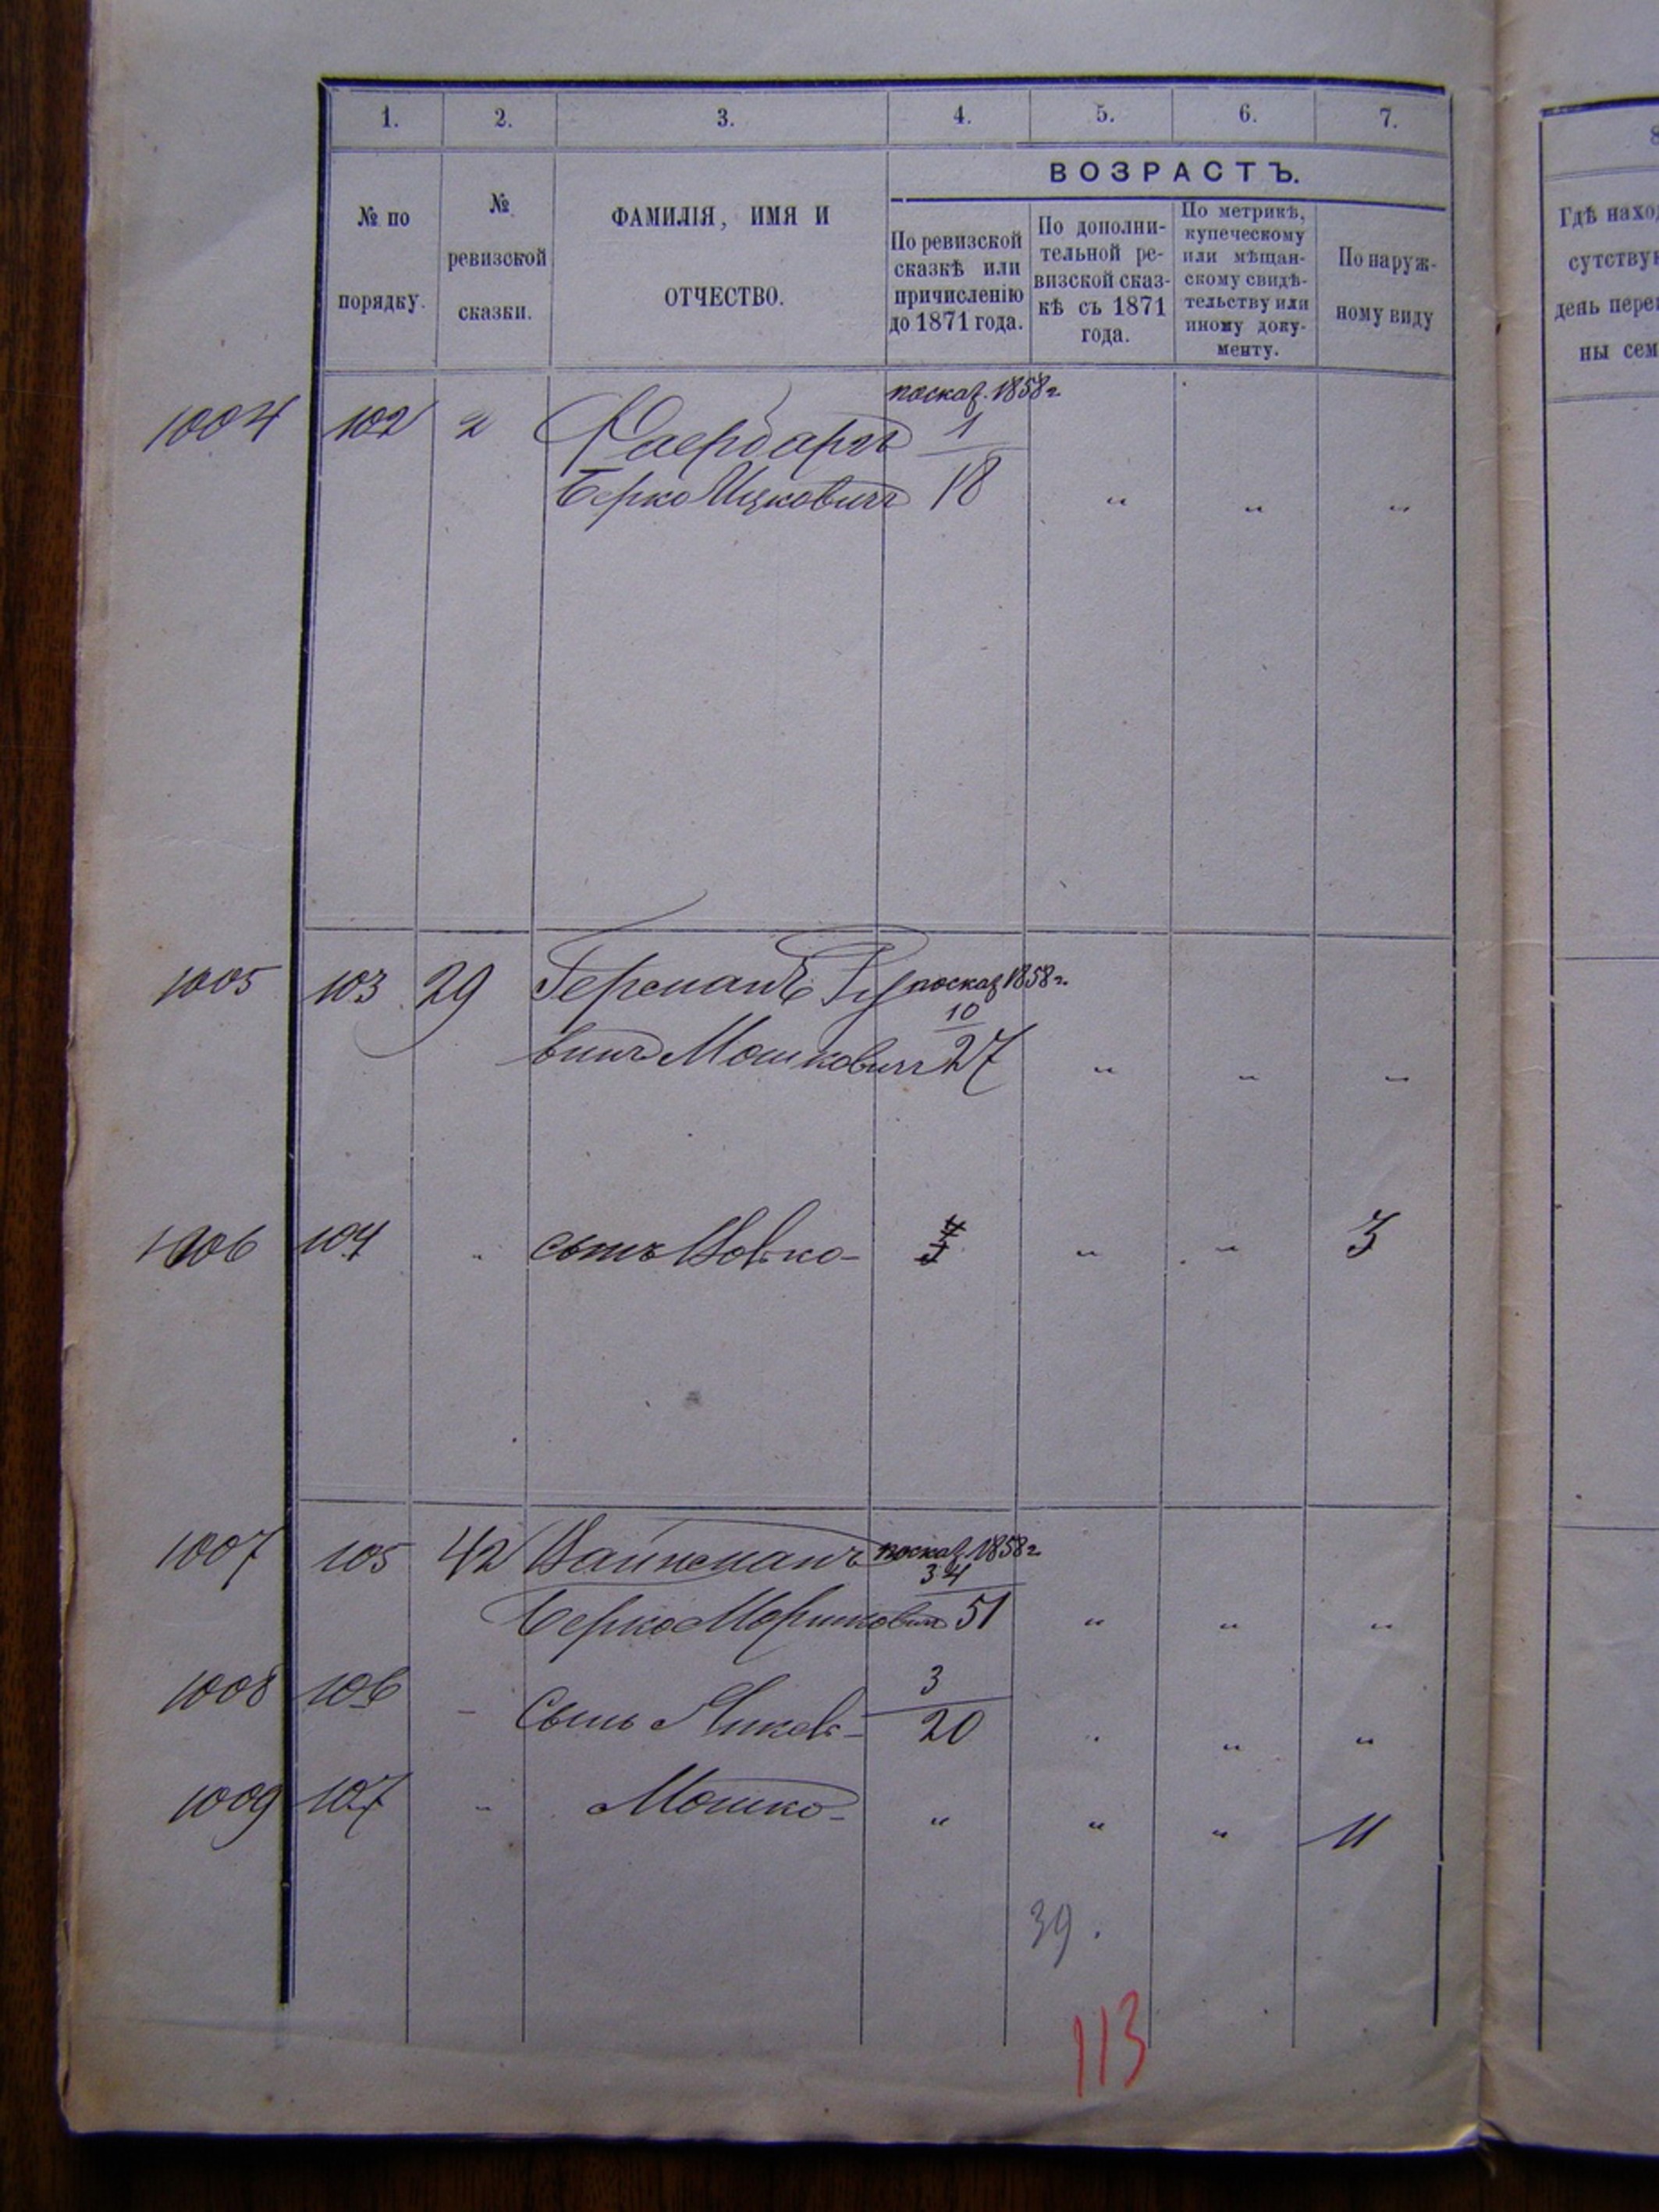 1. 2. 3. 4. 5. 6. 7.
ВОЗРАСТЪ.
№ по порядку.
№ ревизской сказки.
ФАМИЛІЯ, ИМЯ И ОТЧЕСТВО.
По ревизской сказкѣ или причисленію до 1871 года.
По дополнительной ревизской сказкѣ съ 1871 года.
По метрикѣ, купеческому или мѣщанскому свидѣтельству или иному документу.
По наружному виду
8
Гдѣ наход
сутствую
день пере
ны сем
по сказ. 1858 г.
1004 102 2 Фаербаргъ 1
Берко Ицковичъ 18 " " "
1005 103 29 Герсманъ по сказ 1858 г.
10
Мошковичъ 27 " " "
1006 104 " сынъ Вовко - " " 3
1007 105 42 Вайнсманъ по сказ. 1858 г.
34
Берко Моршковичъ 51 " " "
1008 106 - Сынъ Янкель - 3
20 " " "
1009 107 " Мошко - " " " 11
39.
113